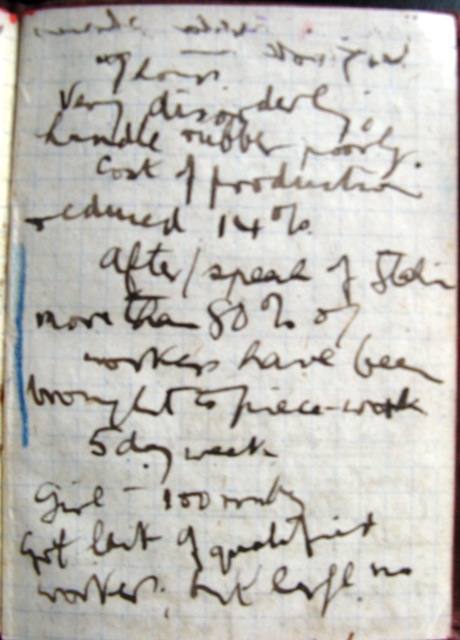 of hours.
Very disorderly,
handle rubber poorly.
Cost of production
reduced 14%.
After speech of Stalin
more than 80% of
workers have been
brought to piece-work
5 day week
Girl - 100
Got lack of qualified
workers, but large no